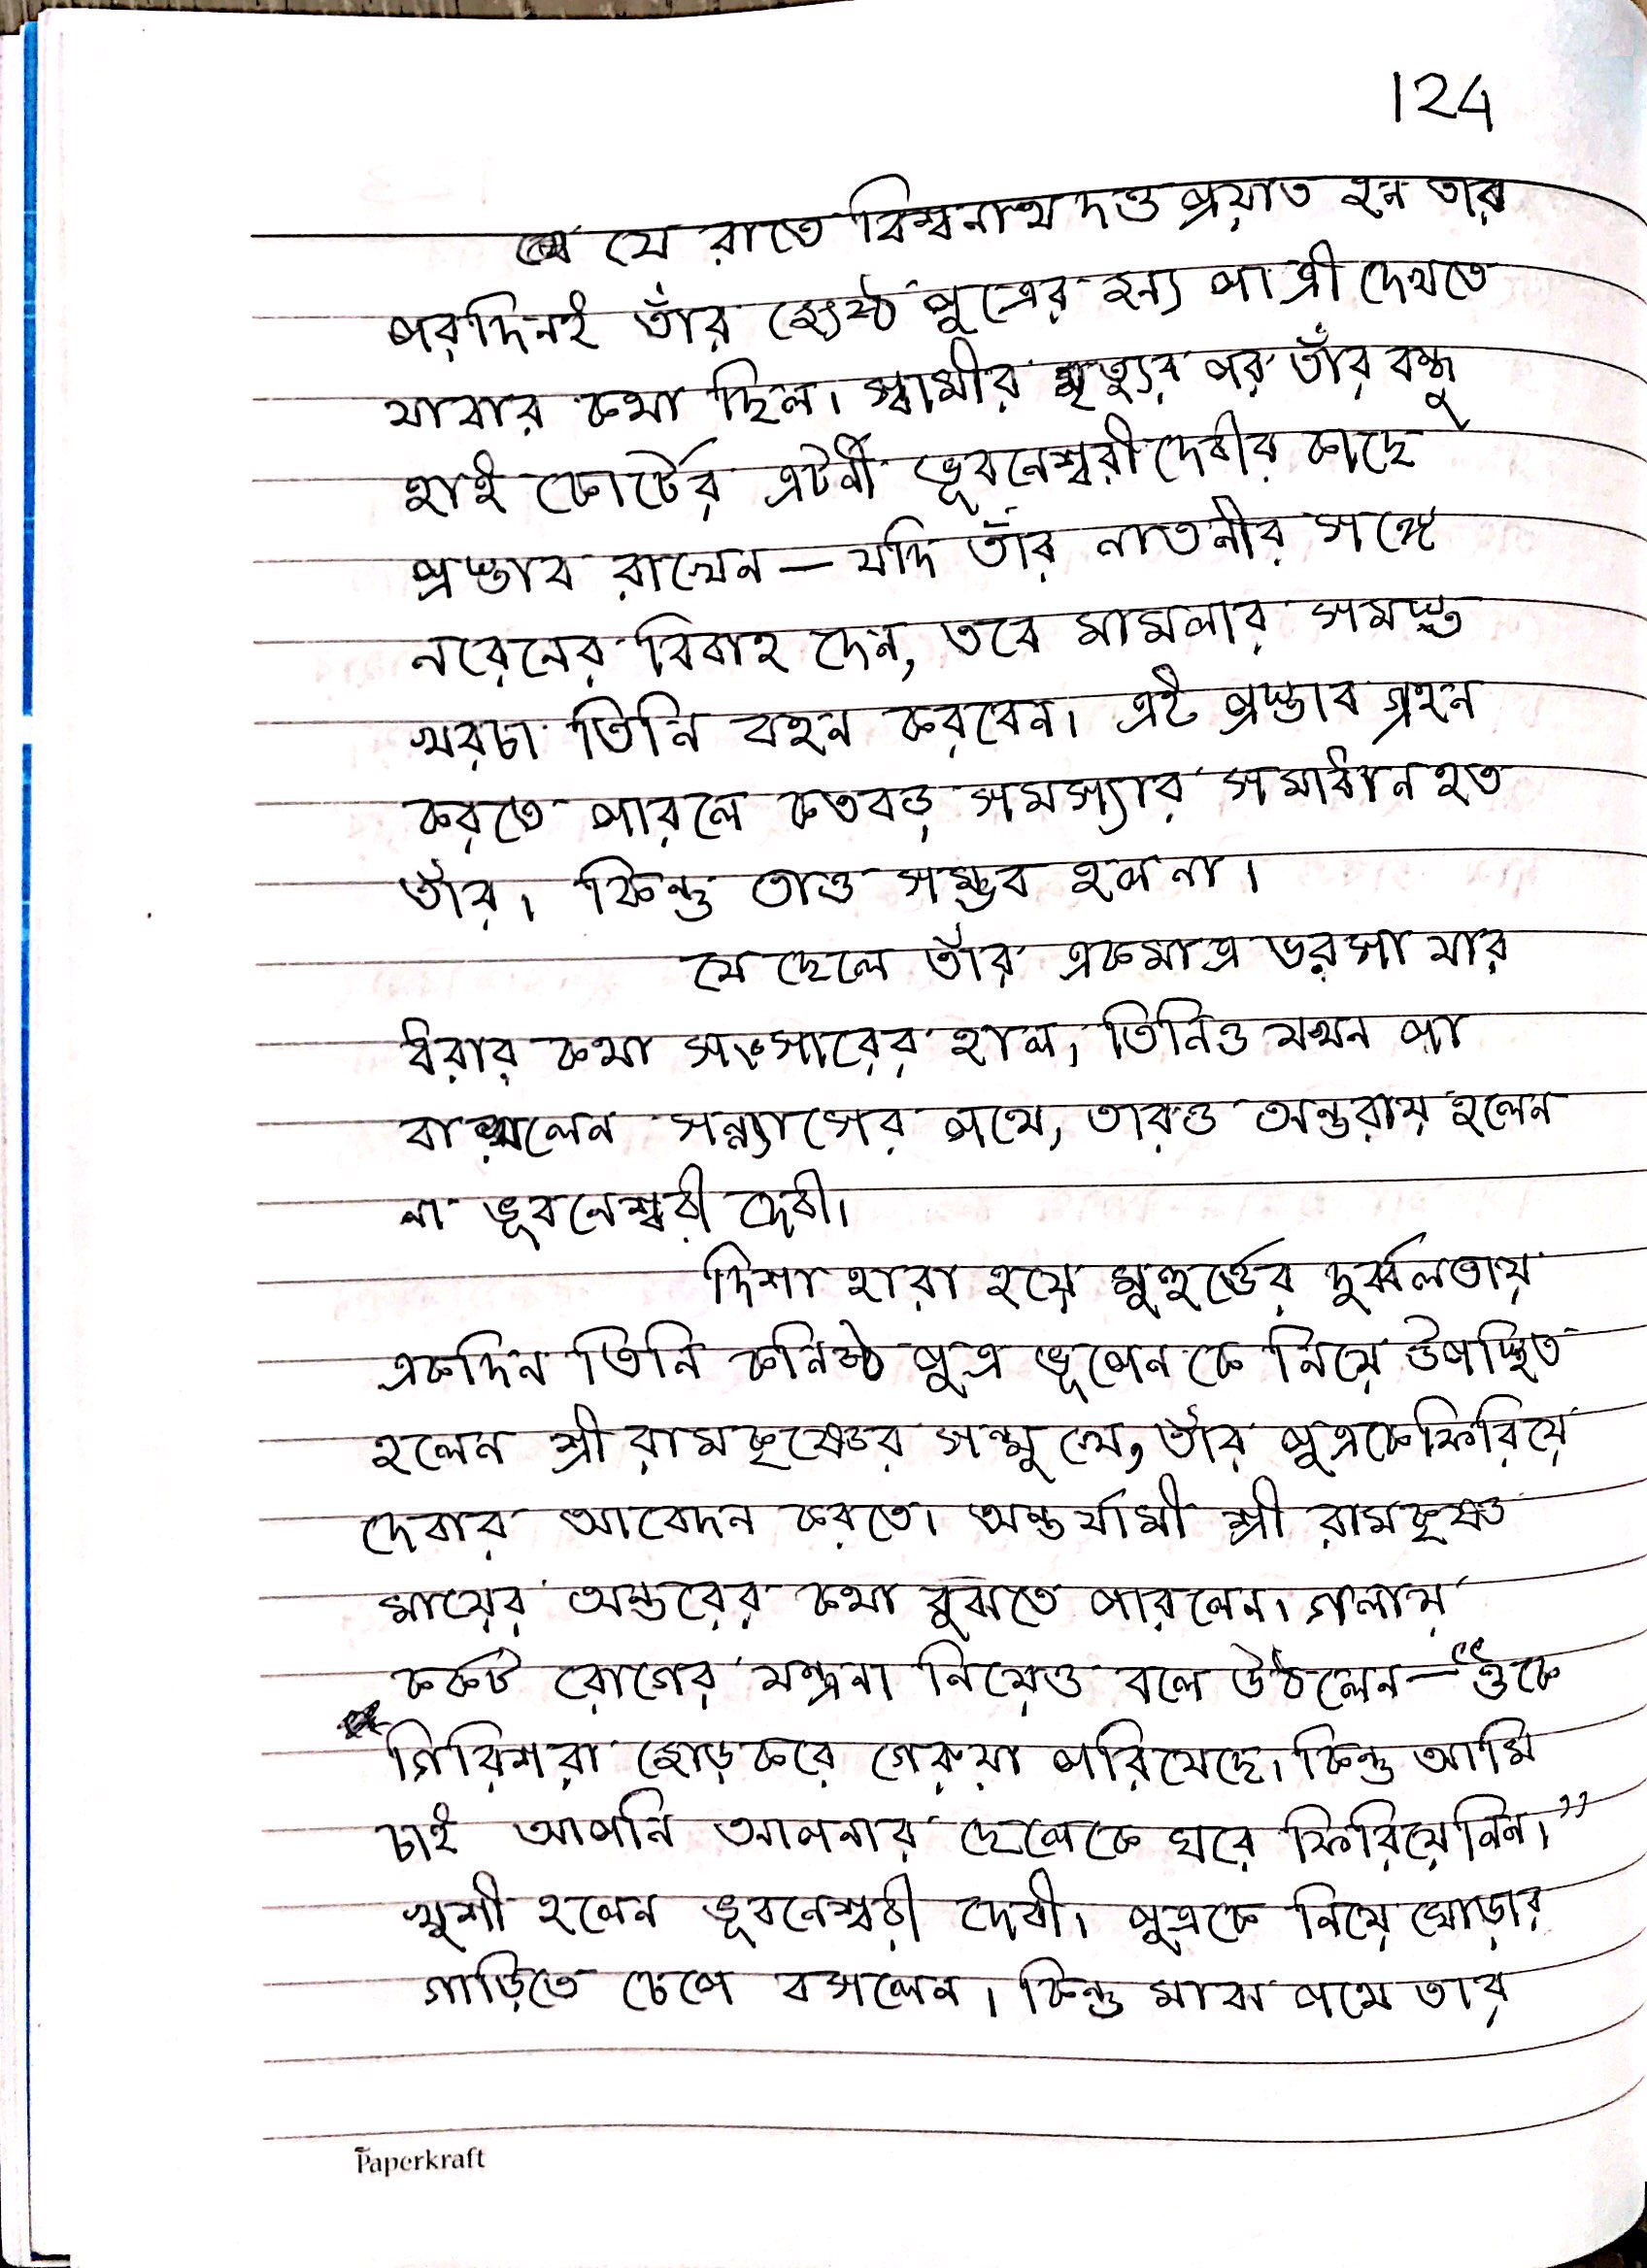 124
যে রাতে বিশ্বনাথ দত্ত প্রয়াত হন তার
পরদিনই তাঁর জ্যেষ্ঠ পুত্রের জন্য পাত্রী দেখতে
যাবার কথা ছিল। স্বামীর মৃত্যুর পর তাঁর বন্ধু
হাই কোর্টের এটর্নী ভূবনেশ্বরী দেবীর কাছে
প্রস্তাব রাখেন — যদি তাঁর নাতনীর সঙ্গে
নরেনের বিবাহ দেন, তবে মামলার সমস্ত
খরচা তিনি বহন করবেন। এই প্রস্তাব গ্রহন
করতে পারলে কতবড় সমস্যার সমাধান হত
তাঁর। কিন্তু তাও সম্ভব হল না।
যে ছেলে তাঁর একমাত্র ভরসা যার
ধরার কথা সংসারের হাল, তিনিও যখন পা
বাড়ালেন সন্ন্যাসের পথে, তারও অন্তরায় হলেন
না ভূবনেশ্বরী দেবী।
দিশা হারা হয়ে মুহুর্ত্তের দুর্ব্বলতায়
একদিন তিনি কনিষ্ঠ পুত্র ভূপেন কে নিয়ে উপস্থিত
হলেন শ্রী রামকৃষ্ণের সম্মুখে, তাঁর পুত্রকে ফিরিয়ে
দেবার আবেদন করতে। অন্তর্যামী শ্রী রামকৃষ্ণ
মায়ের অন্তরের কথা বুঝতে পারলেন। গলায়
কর্কট রোগের যন্ত্রনা নিয়েও বলে উঠলেন — "ওঁকে
গিরিশরা জোড় করে গেরুয়া পরিয়েছে। কিন্তু আমি
চাই আপনি আপনার ছেলেকে ঘরে ফিরিয়ে নিন।"
খুশী হলেন ভূবনেশ্বরী দেবী। পুত্রকে নিয়ে ঘোড়ার
গাড়িতে চেপে বসলেন। কিন্তু মাঝ পথে তার
Paperkraft